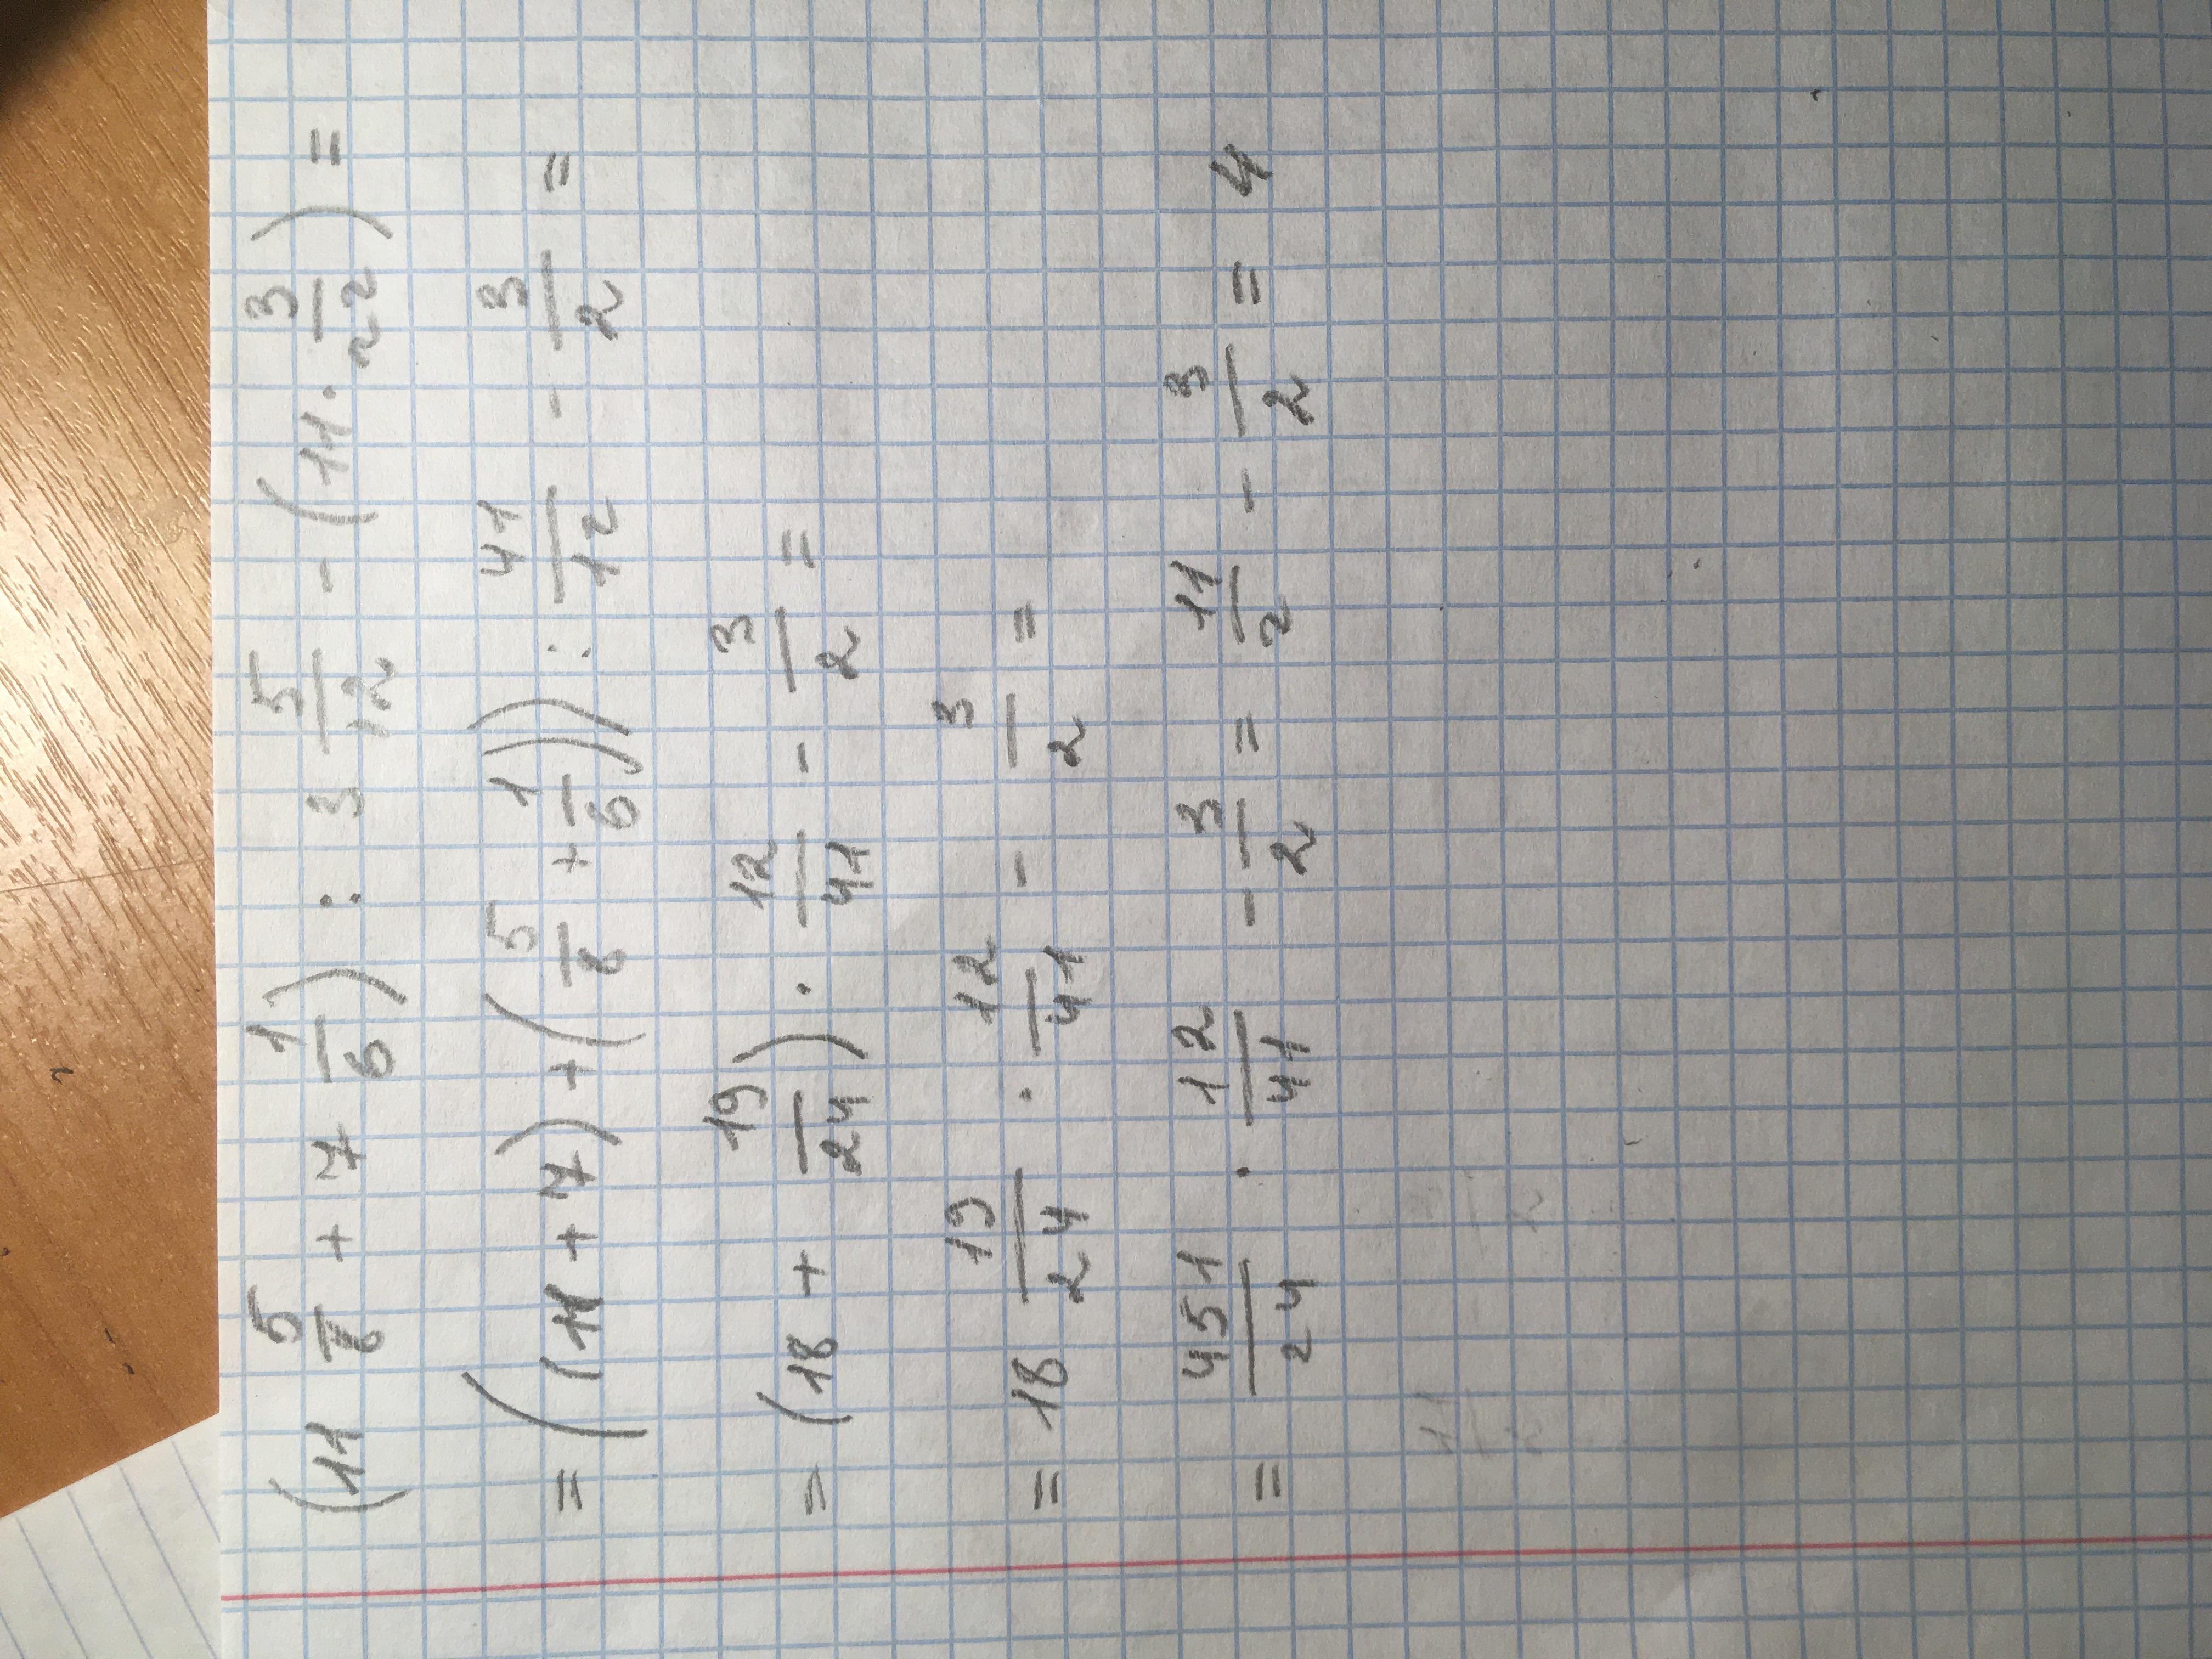 (11 5/8 + 7 1/6) : 3 5/12 - (11 · 3/22) =
= ((11 + 7) + (5/8 + 1/6)) : 41/12 - 3/2 =
= (18 + 19/24) · 12/41 - 3/2 =
= 18 19/24 · 12/41 - 3/2 =
= 451/24 · 12/41 - 3/2 = 11/2 - 3/2 = 4